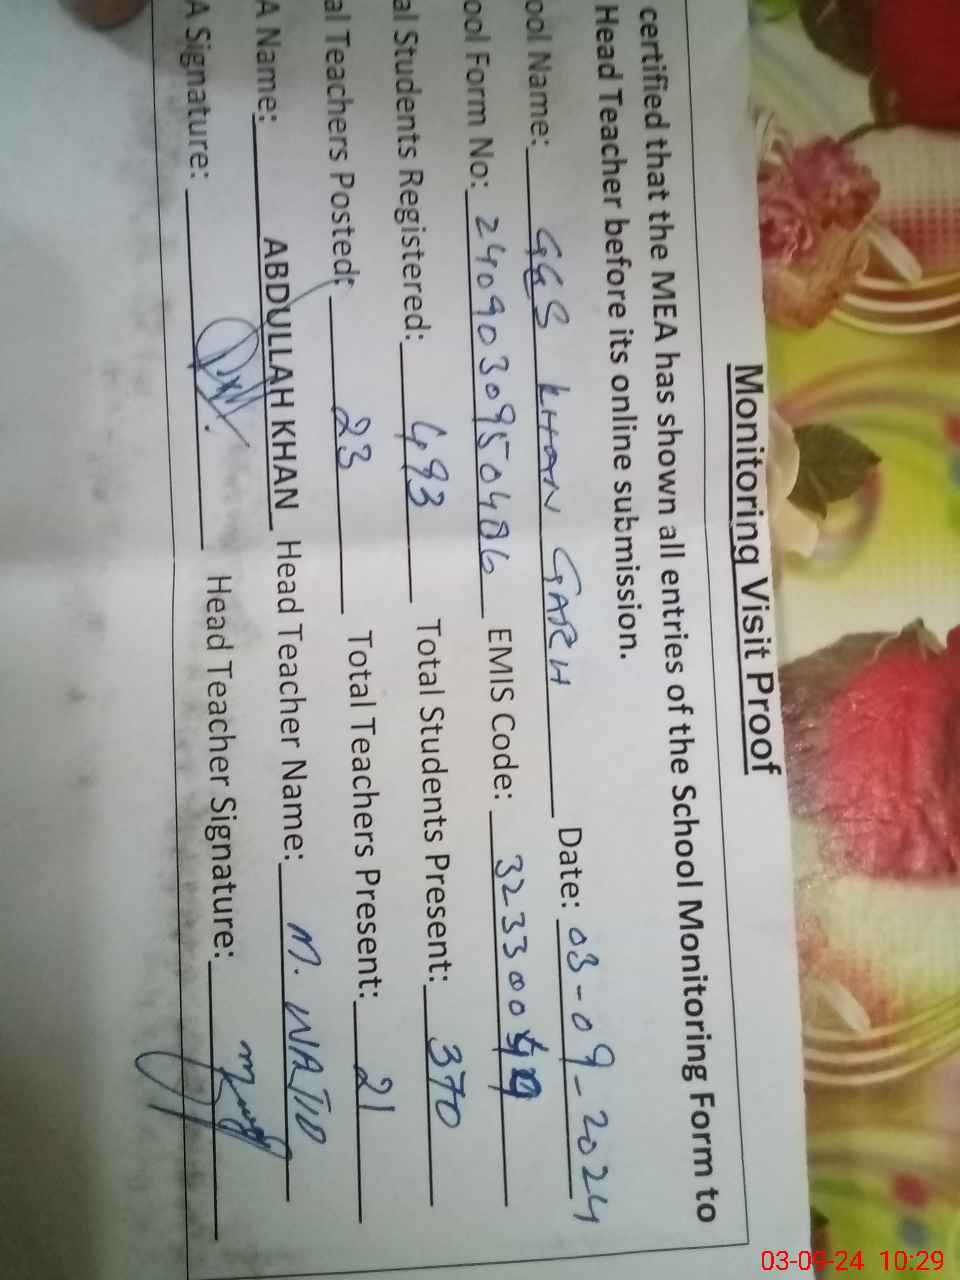 Monitoring Visit Proof
certified that the MEA has shown all entries of the School Monitoring Form to
Head Teacher before its online submission.
ool Name: GGS KHAN GARH Date: 03-09-2024
ool Form No: 2409030950486 EMIS Code:
al Students Registered: 493 Total Students Present: 370
al Teachers Posted: 23 Total Teachers Present: 21
A Name: ABDULLAH KHAN Head Teacher Name: M.
A Signature: Head Teacher Signature:
03-09-24 10:29